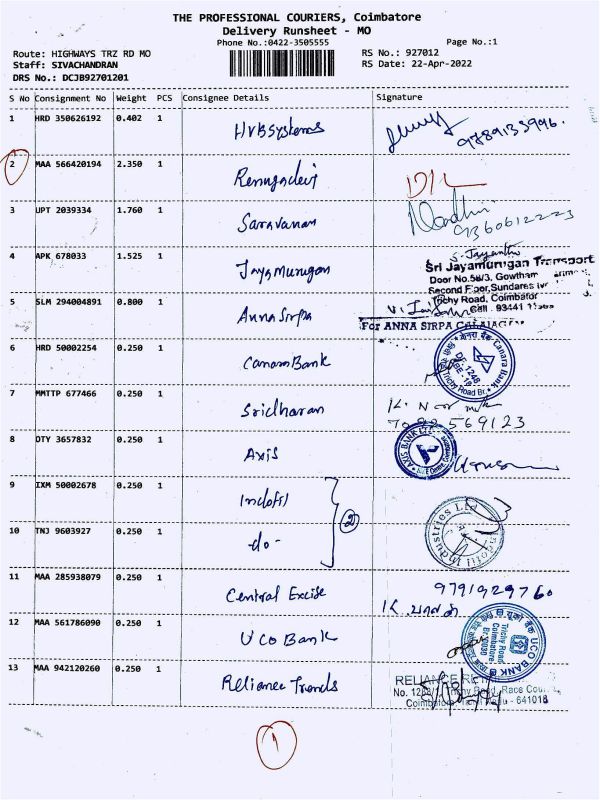 THE PROFESSIONAL COURIERS, Coimbatore
Delivery Runsheet - MO
Phone No.:0422-3505555
Page No.:1
Route: HIGHWAYS TRZ RD MO
RS No.: 927012
Staff: SIVACHANDRAN
RS Date: 22-Apr-2022
DRS No.: DCJB92701201
S No Consignment No Weight PCS Consignee Details Signature
1 HRD 350626192 0.402 1 HVBSystems 9789133996.
2 MAA 566420194 2.350 1 Renugadevi D/L
3 UPT 2039334 1.760 1 Saravanan 9360612223
4 APK 678033 1.525 1 Jayamurugan S. Jayanthi
Sri Jayamurugan Transport
Door No.58/3, Gowtham
Second Floor, Sundares
Trichy Road, Coimbator
Cell : 93441
5 SLM 294004891 0.800 1 Anna Sirpa
For ANNA SIRPA
6 HRD 50002254 0.250 1 Canara Bank
Canara Bank
Trichy Road Br.
7 MMTTP 677466 0.250 1 Sridharan
569123
8 OTY 3657832 0.250 1 Axis
AXIS BANK LTD
9 IXM 50002678 0.250 1 Indofil
2
10 TNJ 9603927 0.250 1 -do-
Indofil Industries Ltd
11 MAA 285938079 0.250 1 Central Excise 9791929760
12 MAA 561786090 0.250 1 UCO Bank
UCO BANK
Trichy Road
Coimbatore
13 MAA 942120260 0.250 1 Reliance Trends
RELIANCE RE
No. 12 Trichy Road, Race Cou
Coimbatore, Tamil Nadu - 641018
1